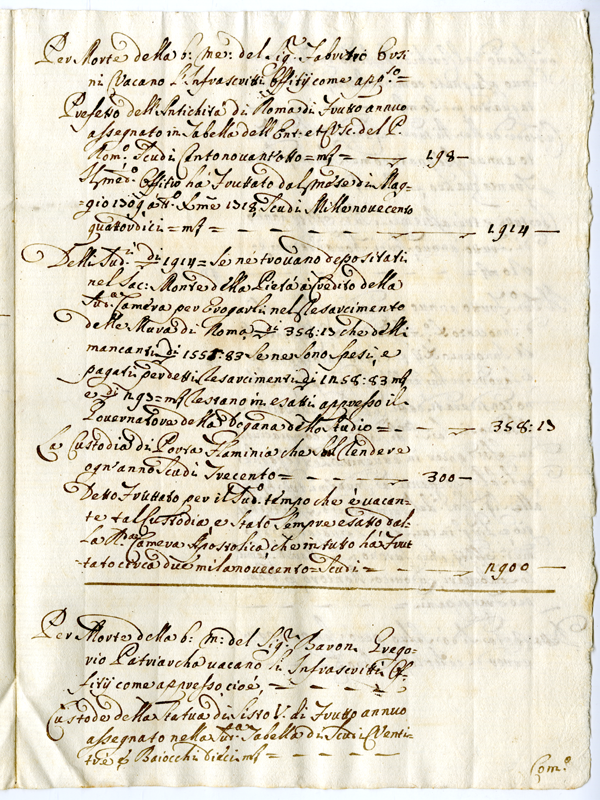 Per Morte della b: me: del Sig.r Fabritio Bosi
ni Vacano l'Infrascritti Offitij come app.o =
Prefetto dell'Antichità di Roma di frutto annuo
assegnato in Tabella dell'Ent: et Usc: del P.
Rom.o Scudi Centonovant'otto = m.ta = — — 198 —
Il med.o Offitio ha fruttato dal mese di Mag-
gio 1309 a tt.o 1318 Scudi Mille novecento
quatordici = m.ta = — — — — — — — 1914 —
Delli Sud.i 1914 = se ne trovano depositati
nel Sac: Monte della Pietà à credito della
Sud.a Camera per Erogarli nel Resarcimento
delle Mura di Roma 358:13 che delli
mancanti 1555:87 se ne sono spesi, e
pagati per detti Resarcimenti 1258:83 m.ta
e 297 = m.ta restano inesatti appresso il
Governatore della Dogana dello Studio = — — 358:13
La Custodia di Porta Flaminia che suol rendere
ogn'anno Scudi Trecento = — — — 300 —
Detto fruttato per il Sud.o tempo che è vacan-
te tal Custodia e stato sempre esatto dal-
la R.da Camera Apostolica che in tutto ha frut
tato circa due mila novecento = Scudi = — — — 2900 —
Per Morte della b: m: del Sig.r Baron Grego-
rio Patriarcha vacano li Infrascritti Of-
fitij come appresso cioé, — — — —
Custode della Statua di Sisto V. di frutto annuo
assegnato nella Sud.a Tabella di Scudi Venti-
tré e Baiocchi dieci m.ta = — — — —
Com.e